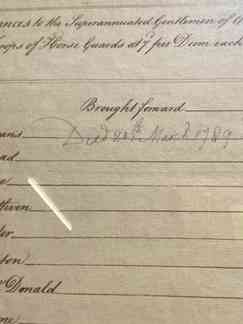 ances to the Superannuated Gentlemen of
oops of Horse Guards at per Diem each
Brought forward
ans Died 20th March 1789
ad
e
thven
ler
ton
Donald
ne